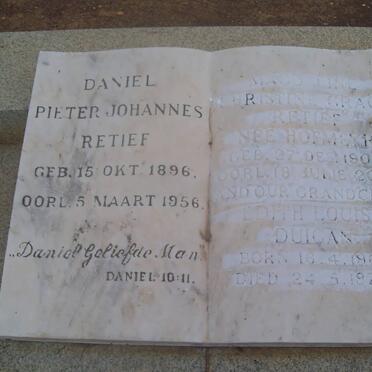 DANIEL
PIETER JOHANNES
RETIEF
GEB. 15 OKT 1896.
OORL. 5 MAART 1956.
„Daniel Geliefde Man"
DANIEL 10:11.
RETIEF
NEE
GEB. 27 DES
OORL. 18 JUNIE
AND OUR
EDITH LOUIS
DUIGAN
BORN 16.4.
DIED 24.5.